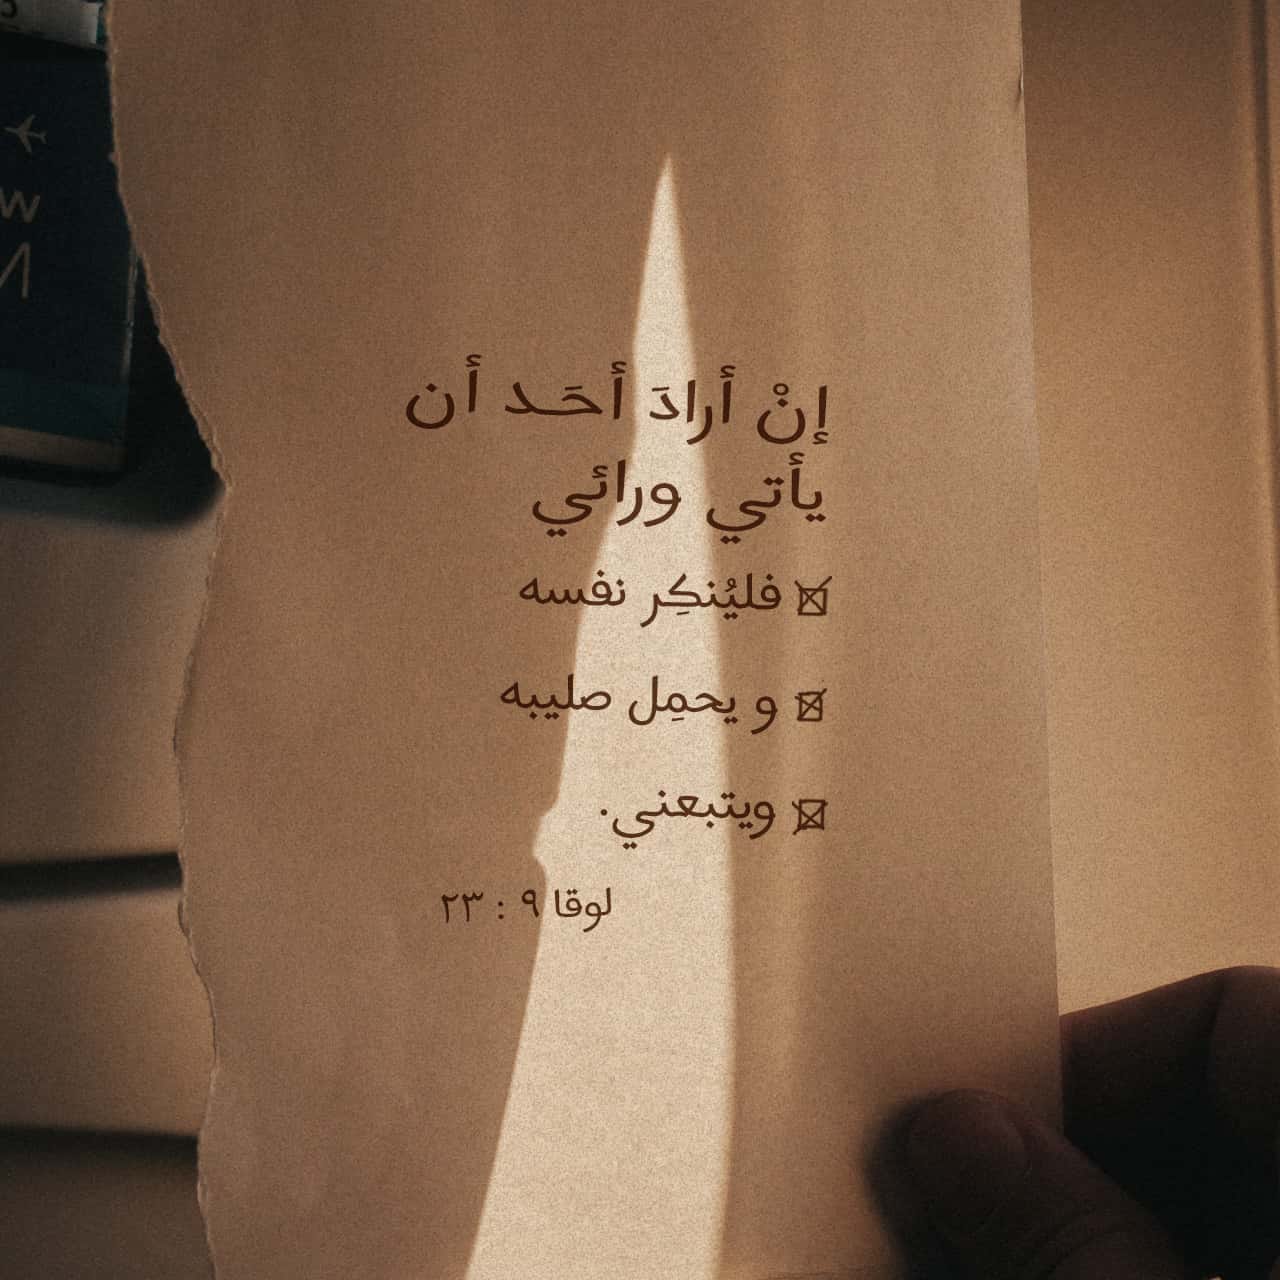 إنْ أرادَ أحَـد أن
يأتي ورائي
☒ فليُنكِر نفسه
☒ و يحمِل صليبه
☒ ويتبعني.
لوقا ٩ : ٢٣
5
w